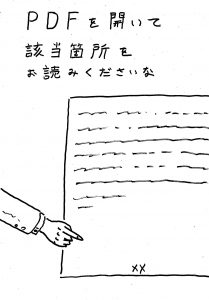 PDFを開いて
該当箇所を
お読みくださいな
××